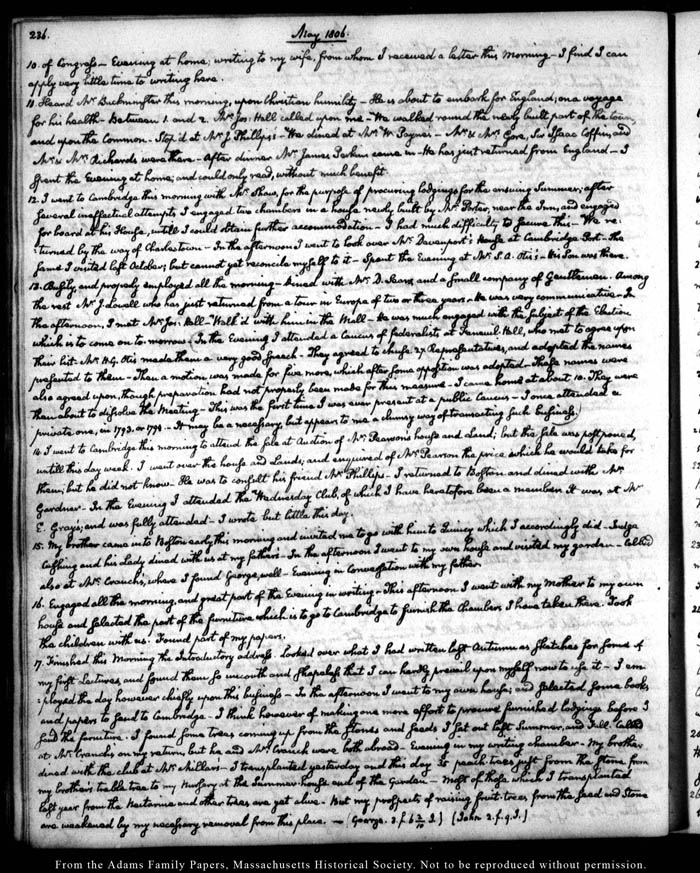 236.
May 1806.
10. of Congress — Evening at home; writing to my wife, from whom I received a letter this morning — I find I can
apply very little time to writing here.
11. Heard Mr. Buckminster this morning, upon Christian humility — He is about to embark for England; on a voyage
for his health — Between 1. and 2. Mr. Jos: Hall called upon me — We walked round the newly built part of the town,
and upon the Common — Stop'd at Mr. J. Phillips's — We dined at Mr. W. Payne's — Mr. & Mrs. Gore, Sir Isaac Coffin, and
Mr. & Mrs. Richards were there — After dinner Mr. James Perkins came in — He has just returned from England — I
spent the Evening at home; and could only read, without much benefit
12. I went to Cambridge this morning with Mr. Shaw, for the purpose of procuring lodgings for the ensuing Summer; after
several ineffectual attempts I engaged two chambers in a house newly built by Mr. Porter, near the Inn; and engaged
for board at his House, untill I could obtain further accommodation — I had much difficulty to secure this — We re-
:turned by the way of Charlestown — In the afternoon I went to look over Mr. Davenport's House at Cambridge Port — the
same I visited last October; but cannot yet reconcile myself to it — Spent the Evening at Mr. S. A. Otis's — His Son was there.
13. Busily, and properly employed all the morning — dined with Mr. D. Sears and a small company of Gentlemen. Among
the rest Mr. J. Lowell who has just returned from a tour in Europe of two or three years — He was very communicative — In
the afternoon, I met Mr. Jos: Hall — Walk'd with him in the Mall — He was much engaged with the subject of the Election
which is to come on to-morrow — In the Evening I attended a Caucus of federalists at Faneuil-Hall, who met to agree upon
their list — Mr. H. G. Otis made them a very good speech — They agreed to chuse 27 Representatives, and adopted the names
presented to them — Then a motion was made for five more, which after some opposition was adopted — These names were
also agreed upon, though preparation had not properly been made for this measure — I came home at about 10. They were
then about to dissolve the Meeting — This was the first time I was ever present at a public Caucus — I once attended a
private one, in 1793. or 1794 — It may be a necessary, but appears to me a clumsy way of transacting such business.
14. I went to Cambridge this morning to attend the sale at Auction of Mr. Pearson's house and Land; but the sale was postponed,
untill this day week. I went over the house and Lands; and enquired of Mr. Pearson the price which he would take for
them; but he did not know. He was to consult his friend Mr. Phillips. I returned to Boston and dined with Mr.
Gardner — In the Evening I attended the Wednesday Club, of which I have heretofore been a member. It was, at Mr.
E. Gray's; and was fully attended — I wrote but little this day.
15. My brother came into Boston early this morning and invited me to go with him to Quincy which I accordingly did. Judge
Cushing and his Lady dined with us at my father's — In the afternoon I went to my own house and visited my garden — Called
also at Mr. Cranch's, where I found George, well — Evening in Conversation with my father.
16. Engaged all the morning, and great part of the Evening in writing — This afternoon I went with my Mother to my own
house and selected the part of the furniture which is to go to Cambridge to furnish the Chambers I have taken there. Took
the children with us. Found part of my papers.
17. Finished this Morning the Introductory address. Looked over what I had written last Autumn as sketches for some of
my first Lectures, and found them so uncouth and shapeless that I can hardly prevail upon myself now to use it — I em-
:ployed the day however chiefly upon this business — In the afternoon I went to my own house; and selected some books
and papers to send to Cambridge — I think however of making one more effort to procure furnished lodgings before I
send the furniture. I found some trees coming up from the stones and seeds I set out last Summer, and Fall. Called
at Mr. Cranch's on my return, but he and Mrs. Cranch were both abroad — Evening in my writing chamber — My brother
dined with the club at Mr. Miller's — I transplanted yesterday and this day 20 peach trees just from the stone from
my brother's table tea to my Nursery at the Summer-house end of the Garden — Most of those which I transplanted
last year from the Nectarine and other trees are yet alive. But my prospects of raising fruit-trees from the Seed and Stone
are weakened by my necessary removal from this place. — [George. 3. f. 6 3/10 I.] [John 2. f. 9. I.]
From the Adams Family Papers, Massachusetts Historical Society. Not to be reproduced without permission.